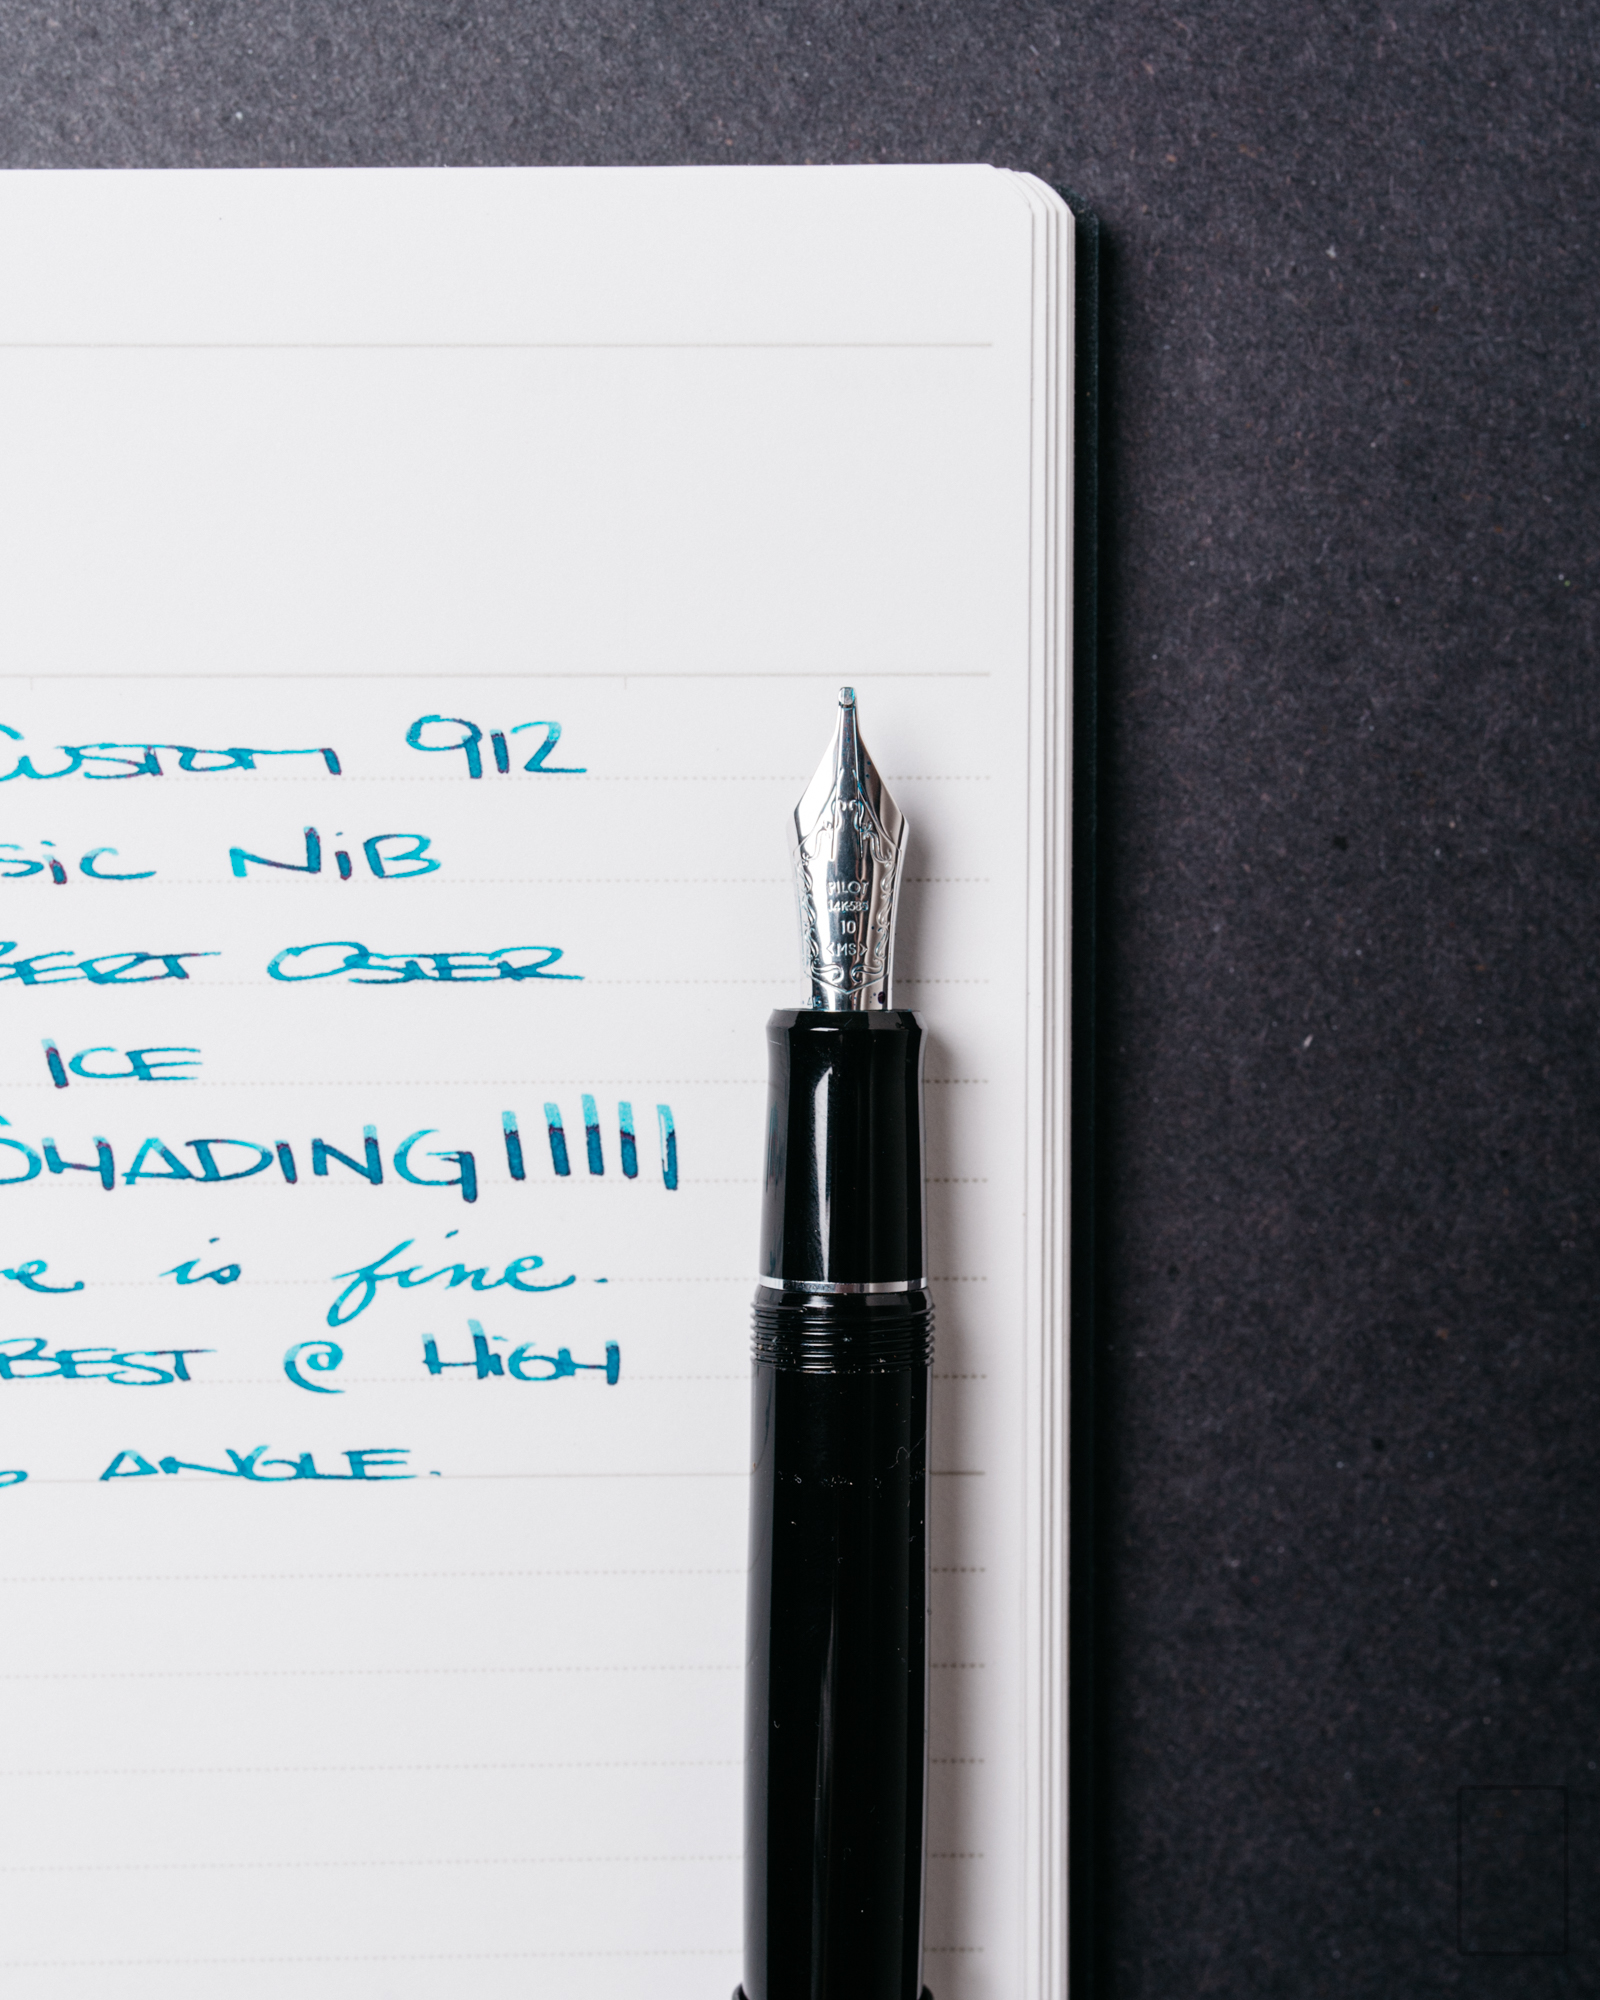 Custom 912
sic NiB
BERT OSTER
ICE
SHADING
e is fine.
BEST @ HiGH
ANGLE.
PILOT
14K585
10
<MS>